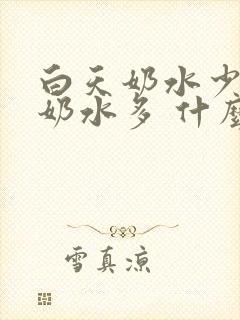 白天奶水少
奶水多 什麼
雪真凉